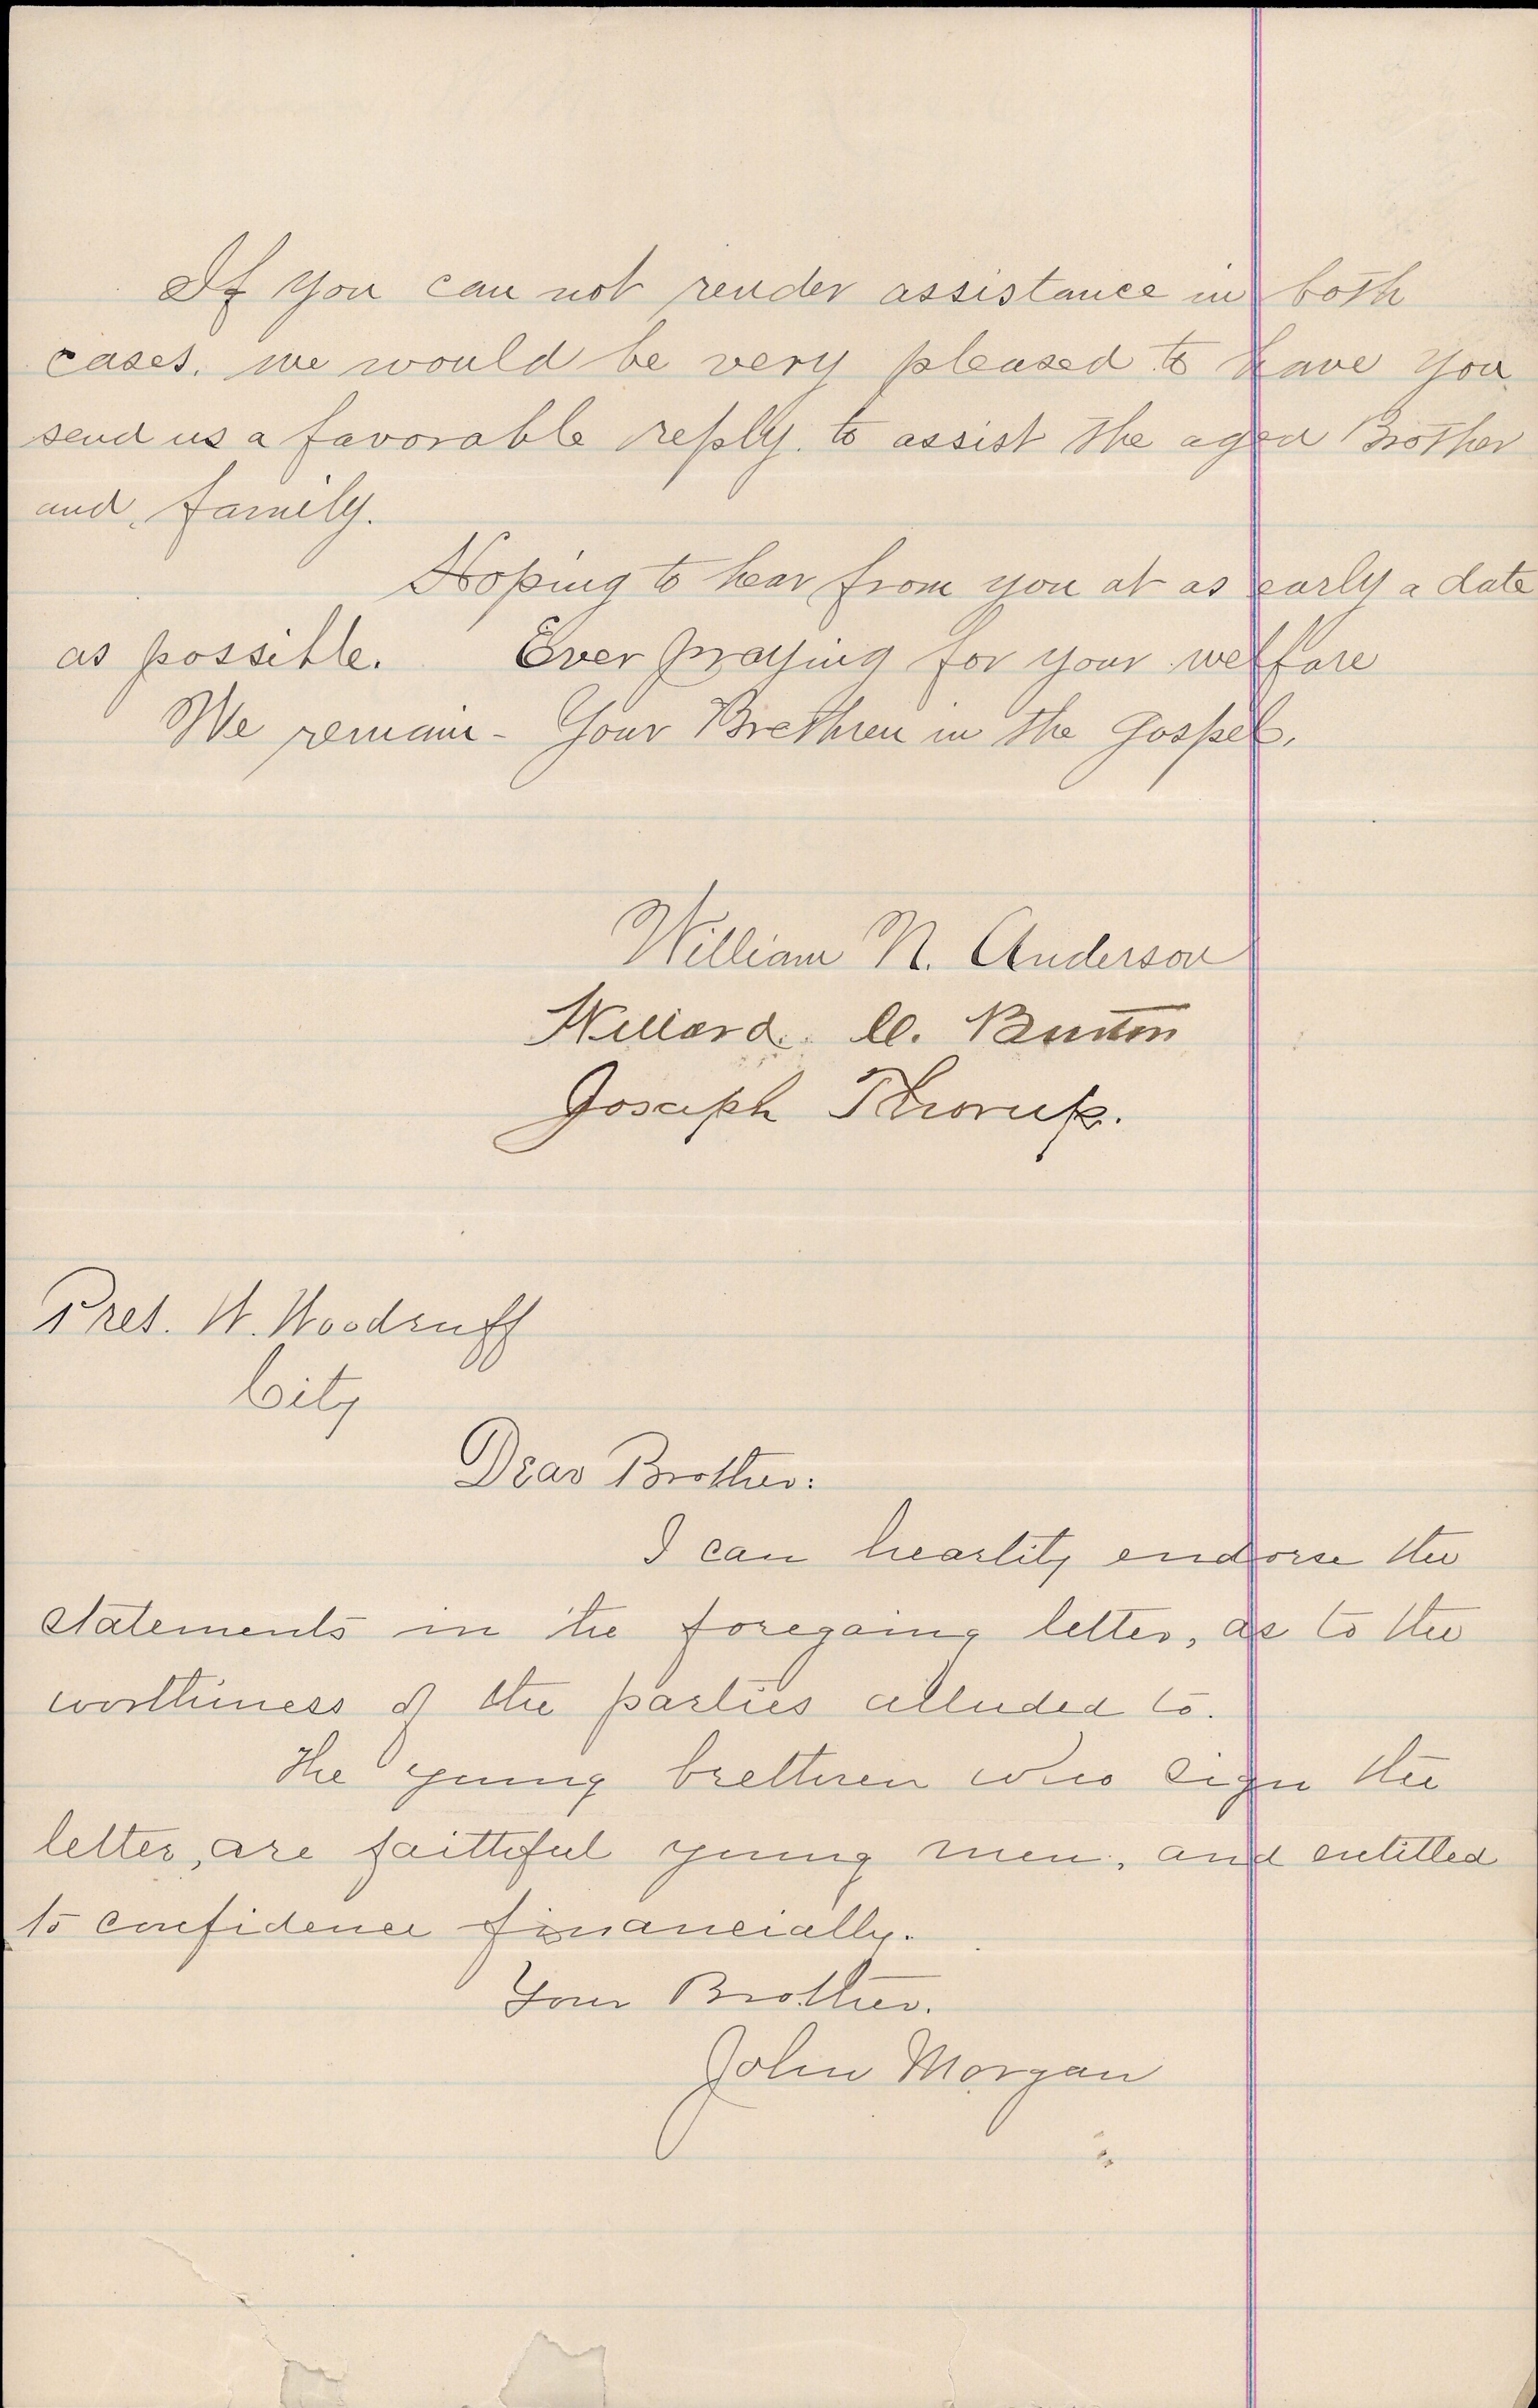 If you can not render assistance in both
cases, we would be very pleased to have you
send us a favorable reply. to assist the aged Brother
and family.
Hoping to hear from you at as early a date
as possible. Ever praying for your welfare
We remain - Your Brethren in the Gospel,
William N. Anderson
Willard C. Burton
Joseph Thorup.
Pres. W. Woodruff
City
Dear Brother:
I can heartily endorse the
statements in the foregoing letter, as to the
worthiness of the parties alluded to.
The young brethren who sign the
letter, are faithful young men, and entitled
to confidence financially.
Your Brother.
John Morgan